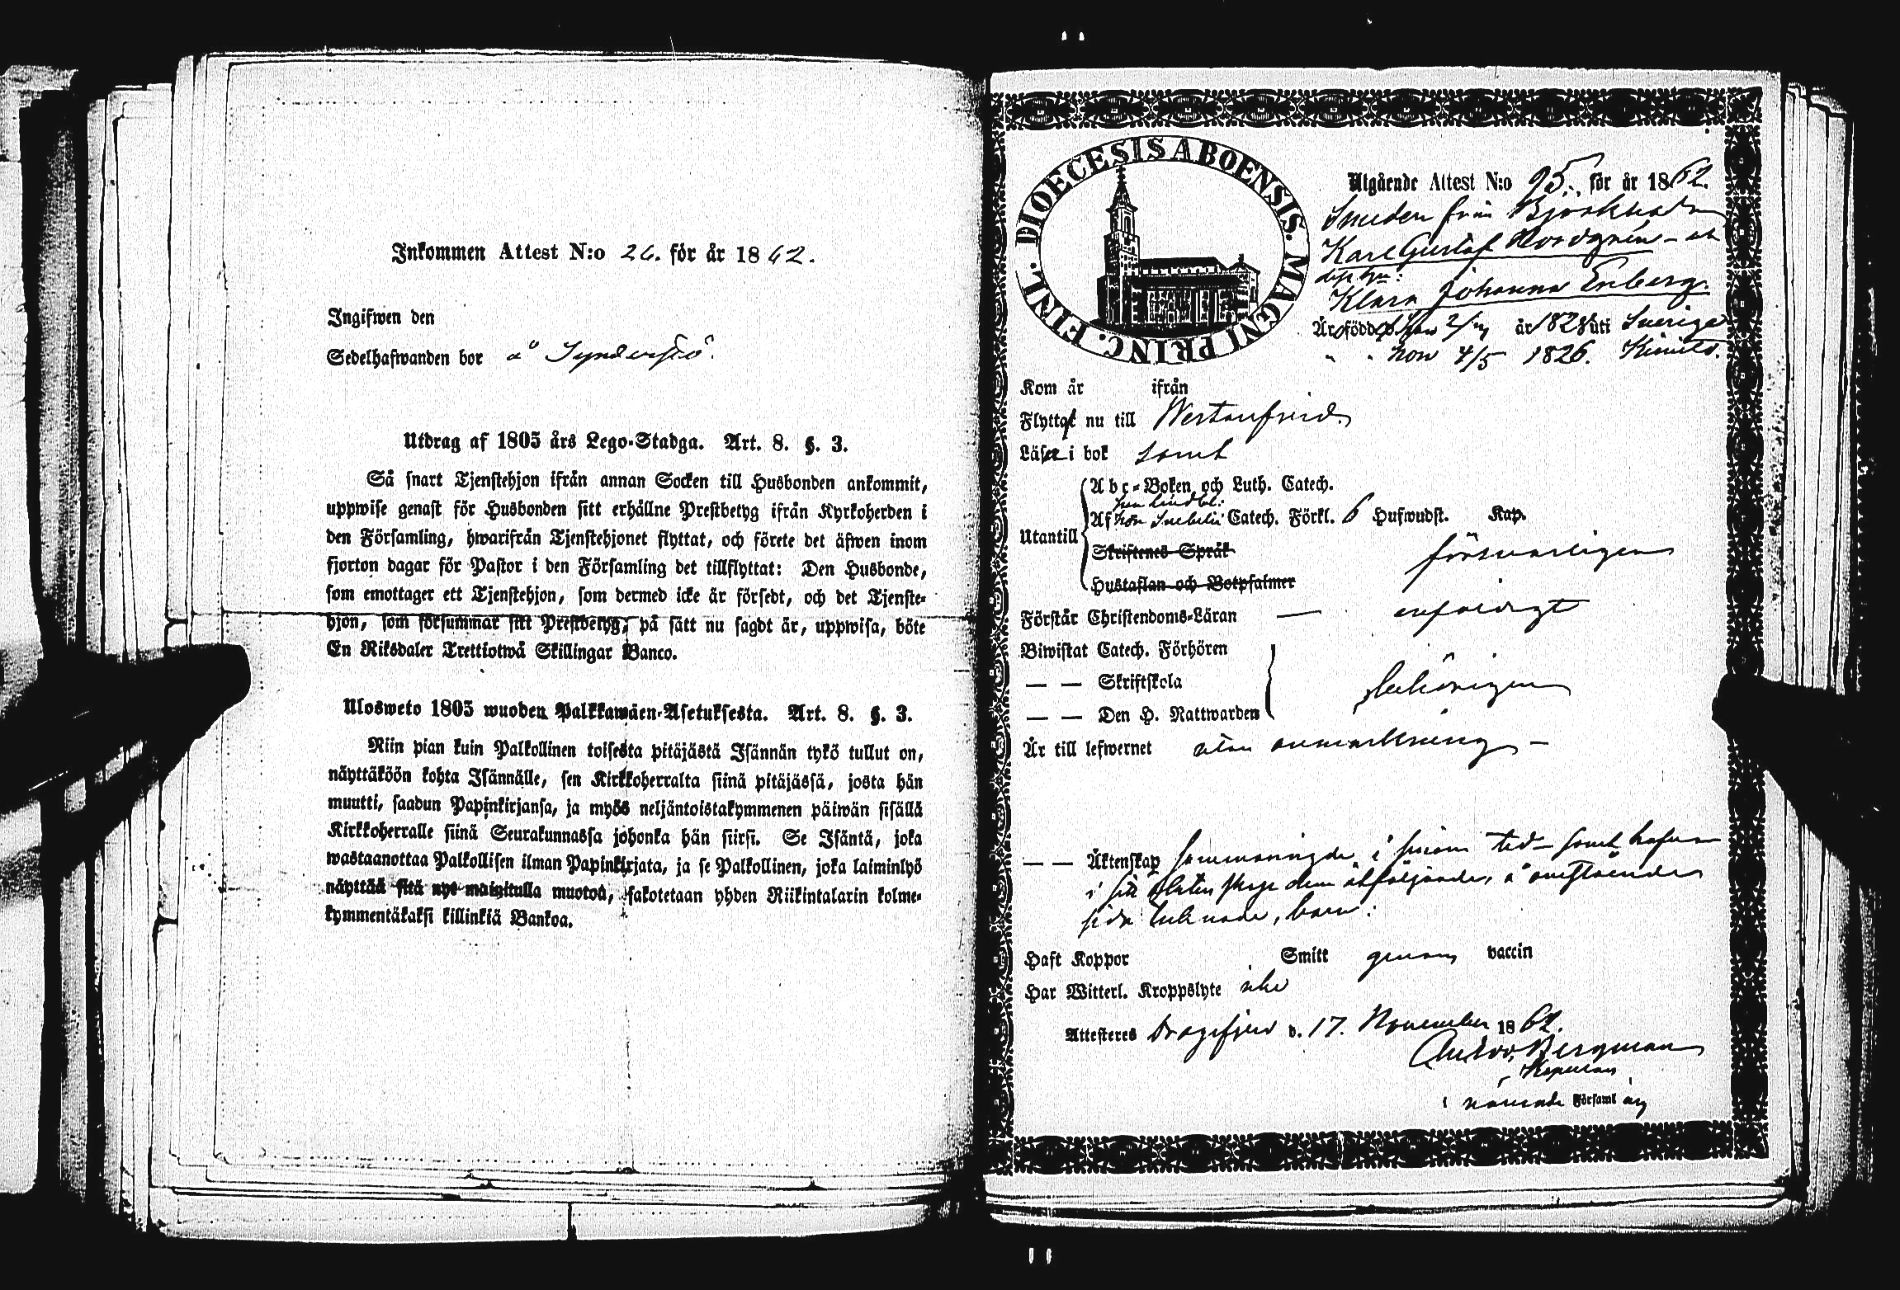 Inkommen Attest N:o 26. för år 1862.
Ingifwen den
Sedelhafwanden bor å
Utdrag af 1805 års Lego-Stadga. Art. 8. §. 3.
Så snart Tjenstehjon ifrån annan Socken till Husbonden ankommit,
uppwise genast för Husbonden sitt erhållne Prestbetyg ifrån Kyrkoherden i
den Församling, hwarifrån Tjenstehjonet flyttat, och förete det äfwen inom
fjorton dagar för Pastor i den Församling det tillflyttat: Den Husbonde,
som emottager ett Tjenstehjon, som dermed icke är försedt, och det Tjenste-
hjon, som försummar sitt Prestbetyg, på sätt nu sagdt är, uppwisa, böte
En Riksdaler Trettiotwå Skillingar Banco.
Ulosweto 1805 wuoden Palkkawäen-Asetuksesta. Art. 8. §. 3.
Niin pian kuin Palkollinen toisesta pitäjästä Isännän tykö tullut on,
näyttäköön kohta Isännälle, sen Kirkkoherralta siinä pitäjässä, josta hän
muutti, saadun Papinkirjansa, ja myös neljäntoistakymmenen päiwän sisällä
Kirkkoherralle siinä Seurakunnassa johonka hän siirsi. Se Isäntä, joka
wastaanottaa Palkollisen ilman Papinkirjata, ja se Palkollinen, joka laiminlyö
näyttää sitä nyt mainitulla muotoa, sakotetaan yhden Riikintalarin kolme-
kymmentäkaksi killinkiä Bankoa.
DIOECESIS ABOENSIS. MAGNI PRINC. FINL.
Utgående Attest N:o 95. för år 1862.
Smeden från
Karl Gustaf Nordgrén
Klara Johanna Enberg.
År född han år 1828 uti Sverige
hon 4/5 1826. Kimito.
Kom år ifrån
Flyttat nu till Westanfierd.
Läsa i bok samt
Abc-Boken och Luth. Catech.
Af hon Svebelii Catech. Förkl. 6 Hufwudst. Kap.
Utantill
Skriftenes Språk försvarligen
Hustaflan och Botpsalmer
Förstår Christendoms-Läran — enfaldigt
Biwistat Catech. Förhören
— — Skriftskola behörigen
— — Den H. Nattwarden
Är till lefwernet utan anmärkning –
— — Äktenskap sammanvigde i sinom tid samt hafva
i sitt äktenskap dem åtföljande, å omstående
sida tecknade, barn:
Haft Koppor Smitt genom vaccin
Har Witterl. Kroppslyte icke
Attesteres Dragsfjerd d. 17. November 1862.
Bergman
Kapellan
i nämnde Församl ing